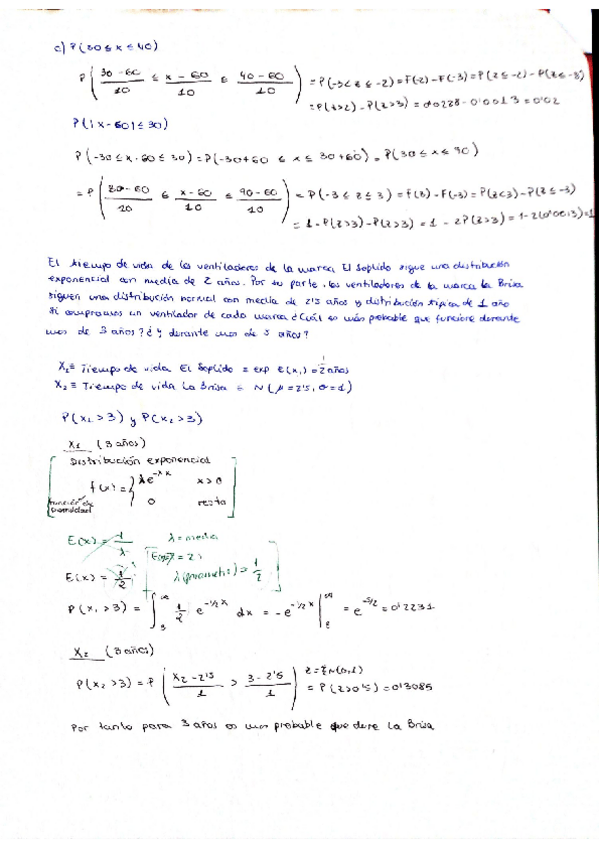 c) P(30 ≤ x ≤ 40)
P( (30-60)/10 ≤ (x-60)/10 ≤ (40-60)/10 ) = P(-3 < z ≤ -2) = F(-2) - F(-3) = P(z ≤ -2) - P(z ≤ -3)
= P(z>2) - P(z>3) = 0'0228 - 0'0013 = 0'02
P(|x-60| ≤ 30)
P(-30 ≤ x-60 ≤ 30) = P(-30+60 ≤ x ≤ 30+60) = P(30 ≤ x ≤ 90)
= P( -60 / 10 ≤ (x-60)/10 ≤ (90-60)/10 ) = P(-3 ≤ z ≤ 3) = F(3) - F(-3) = P(z<3) - P(z ≤ -3)
= 1 - P(z>3) - P(z>3) = 1 - 2P(z>3) = 1-2(0'0013) = 1
El tiempo de vida de los ventiladores de la marca El Soplido sigue una distribución
exponencial con media de 2 años. Por su parte, los ventiladores de la marca la Brisa
siguen una distribución normal con media de 2'5 años y distribución típica de 1 año
Si compramos un ventilador de cada marca ¿Cuál es más probable que funcione durante
mas de 3 años? ¿Y durante mas de 5 años?
X₁ ≡ Tiempo de vida El Soplido ≡ exp e(x₁) = 2 años
X₂ ≡ Tiempo de vida La Brisa ≡ N(μ=2'5, σ=1)
P(x₁ > 3) y P(x₂ > 3)
X₁ (3 años)
Distribución exponencial
f(x) = { λe^-λx x>0
función de densidad
0 resto
E(x) = 1/λ λ = media
E(x) = 2
E(x) = 1/2 λ = 1/2
P(x₁ > 3) = ∫₃^∞ 1/2 e^(-1/2 x) dx = -e^(-1/2 x) |^∞ = e^(-3/2) = 0'2231
X₂ (3 años)
P(x₂ > 3) = P( (X₂-2'5)/1 > (3-2'5)/1 ) z ≡ N(0,1) = P(z>0'5) = 0'3085
Por tanto para 3 años es mas probable que dure La Brisa